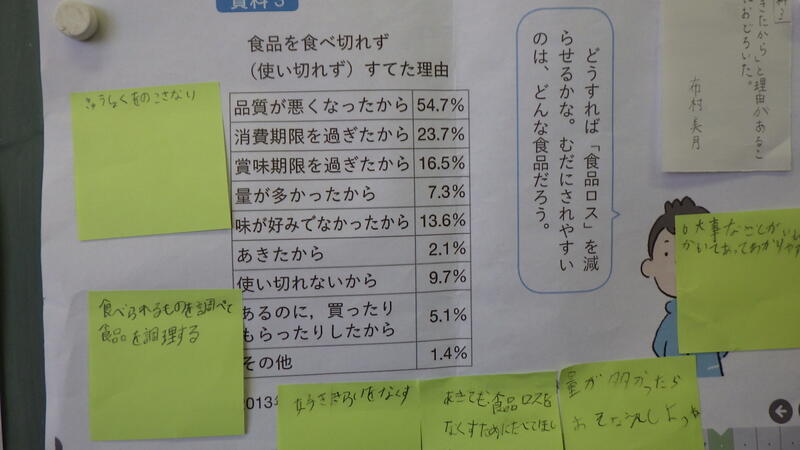 資料3
食品を食べ切れず
(使い切れず)すてた理由
品質が悪くなったから 54.7%
消費期限を過ぎたから 23.7%
賞味期限を過ぎたから 16.5%
量が多かったから 7.3%
味が好みでなかったから 13.6%
あきたから 2.1%
使い切れないから 9.7%
あるのに,買ったり
もらったりしたから 5.1%
その他 1.4%
2013年
どうすれば「食品ロス」を減
らせるかな。むだにされやすい
のは、どんな食品だろう。
きたから」と理由があるこ
におどろいた。
布村美月
きゅうしょくをのこさない
食べられるものを調べて
食品を調理する
すききらいをなくす
あきても食品ロスを
なくすためにたべてほし
量が多かったら
大事なことが
かいてあってわかりやす